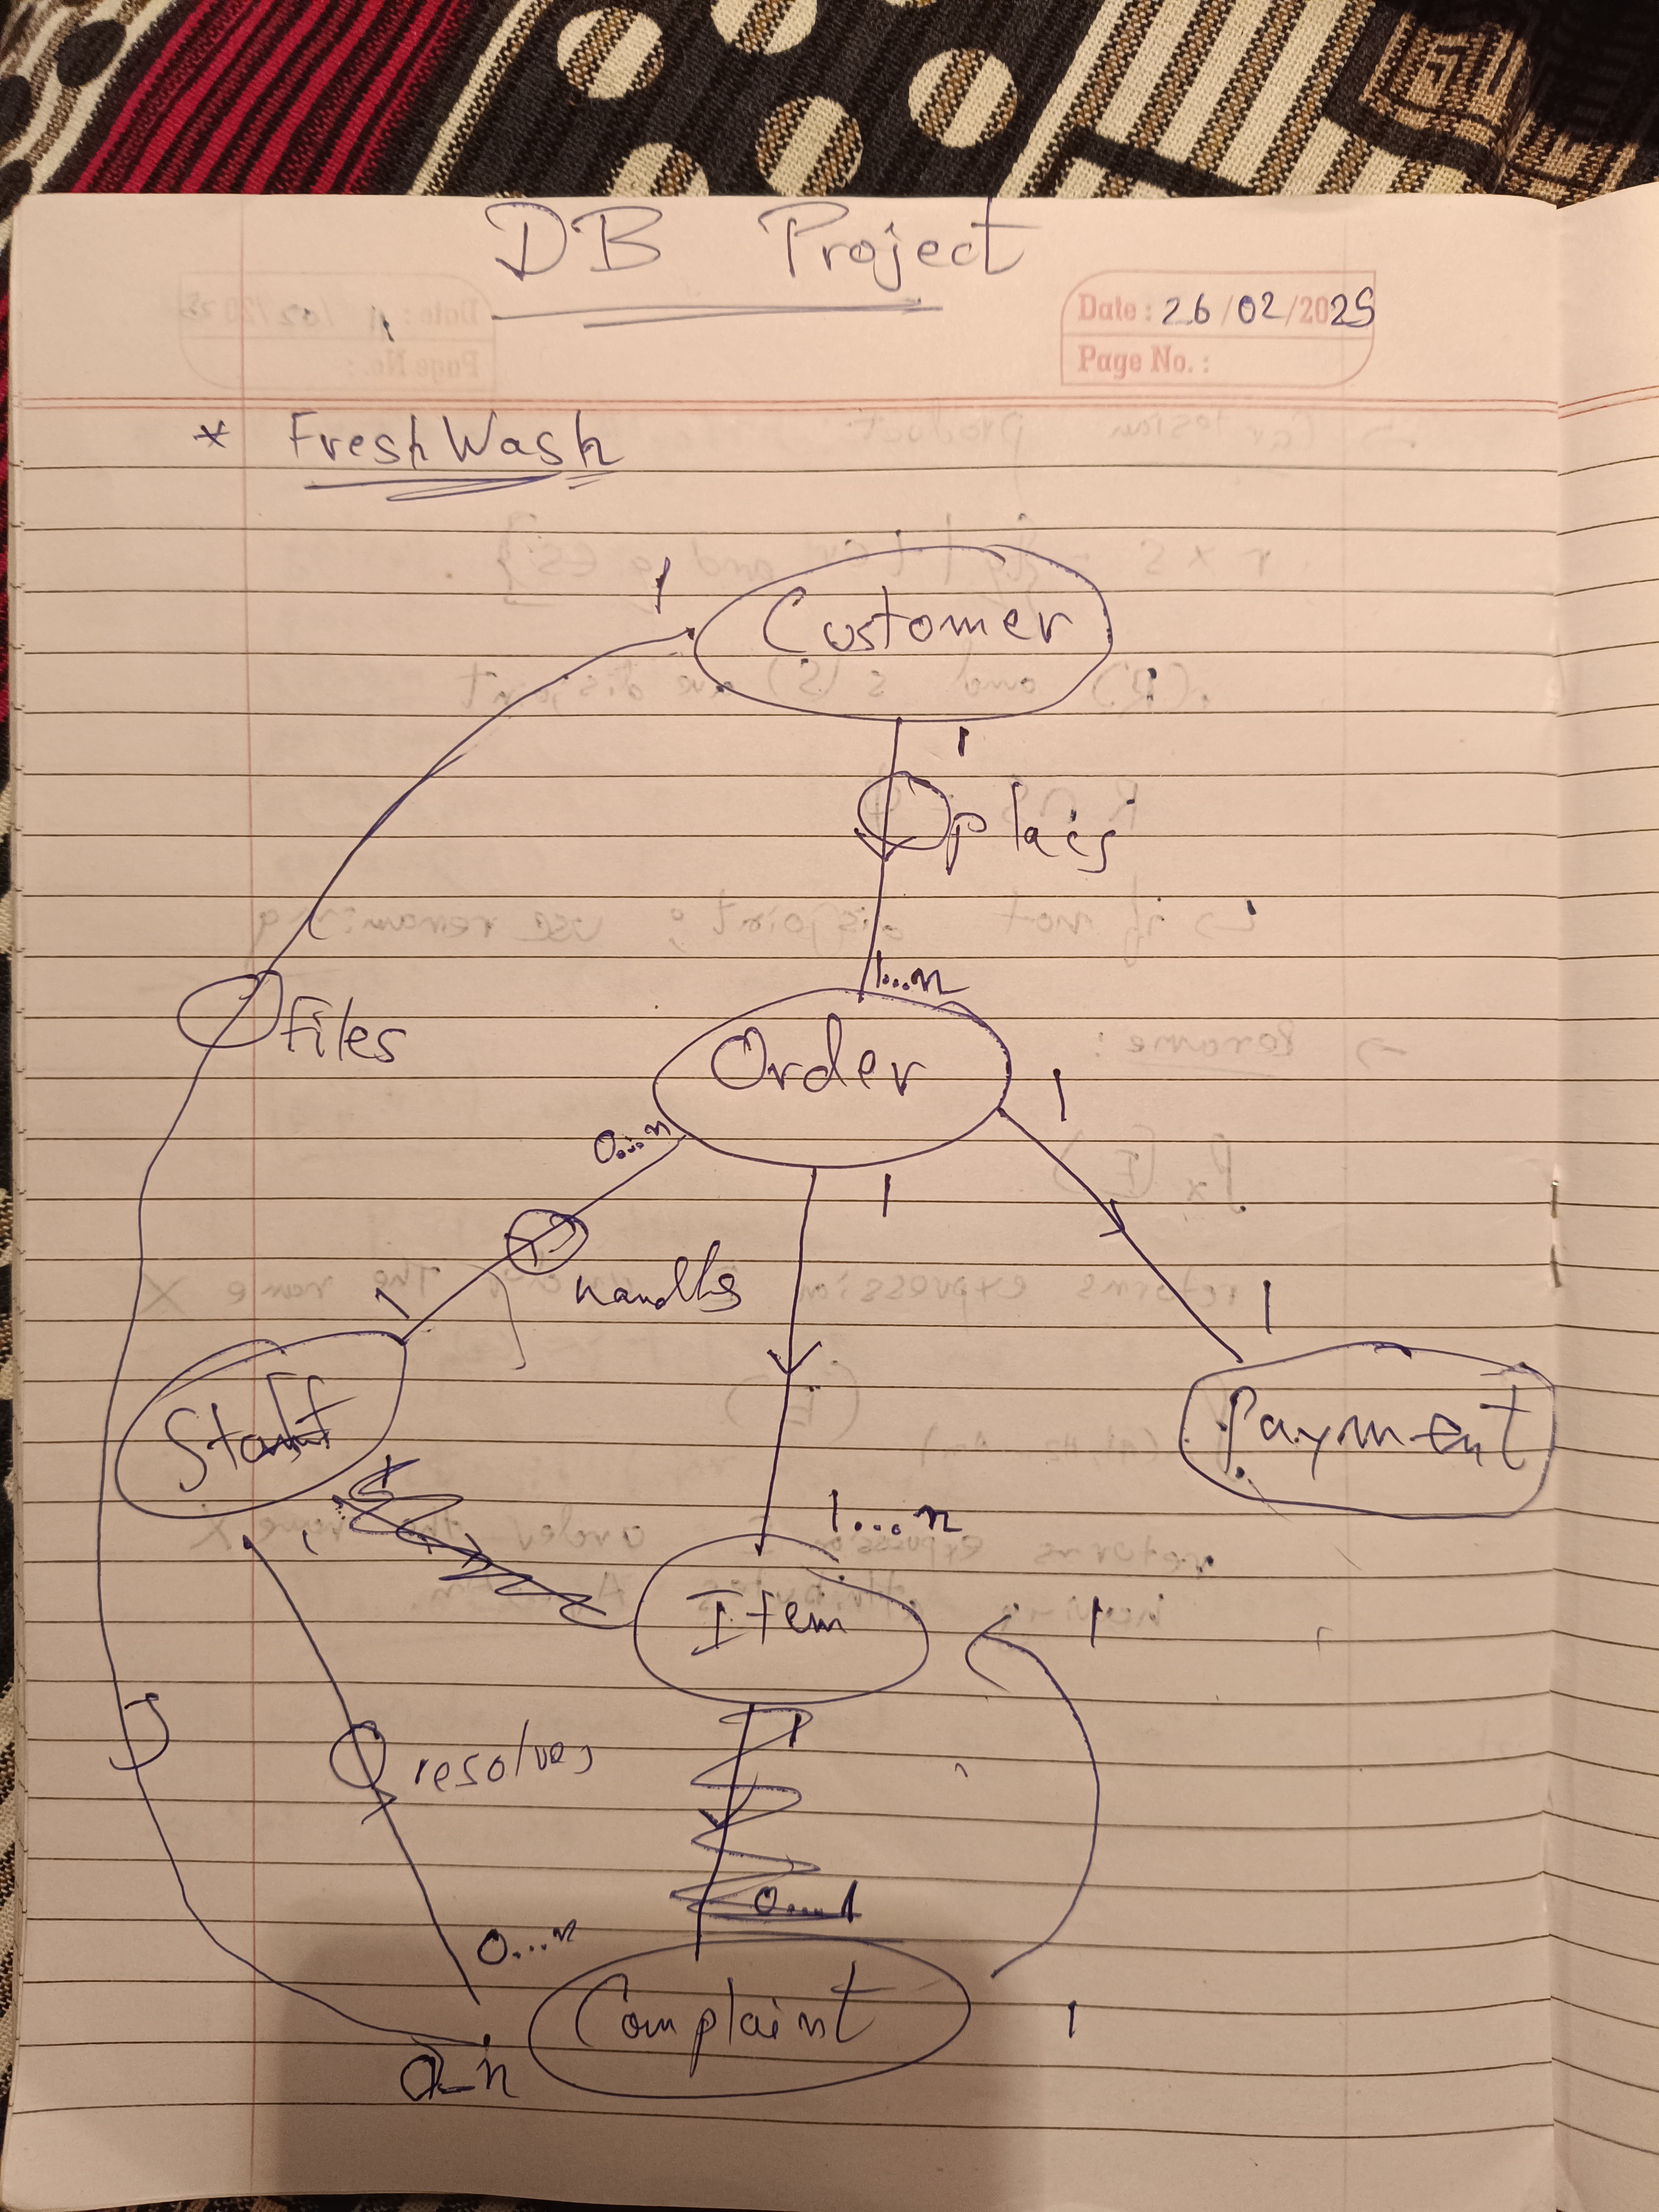 DB Project
Date : 26/02/2025
Page No. :
* FreshWash
1
Customer
1
places
1...n
files
Order
1
0...n
1
handles
1
1
Staff
Payment
1...n
Item
1
1
resolves
0...1
0...n
Complaint
1
0_n